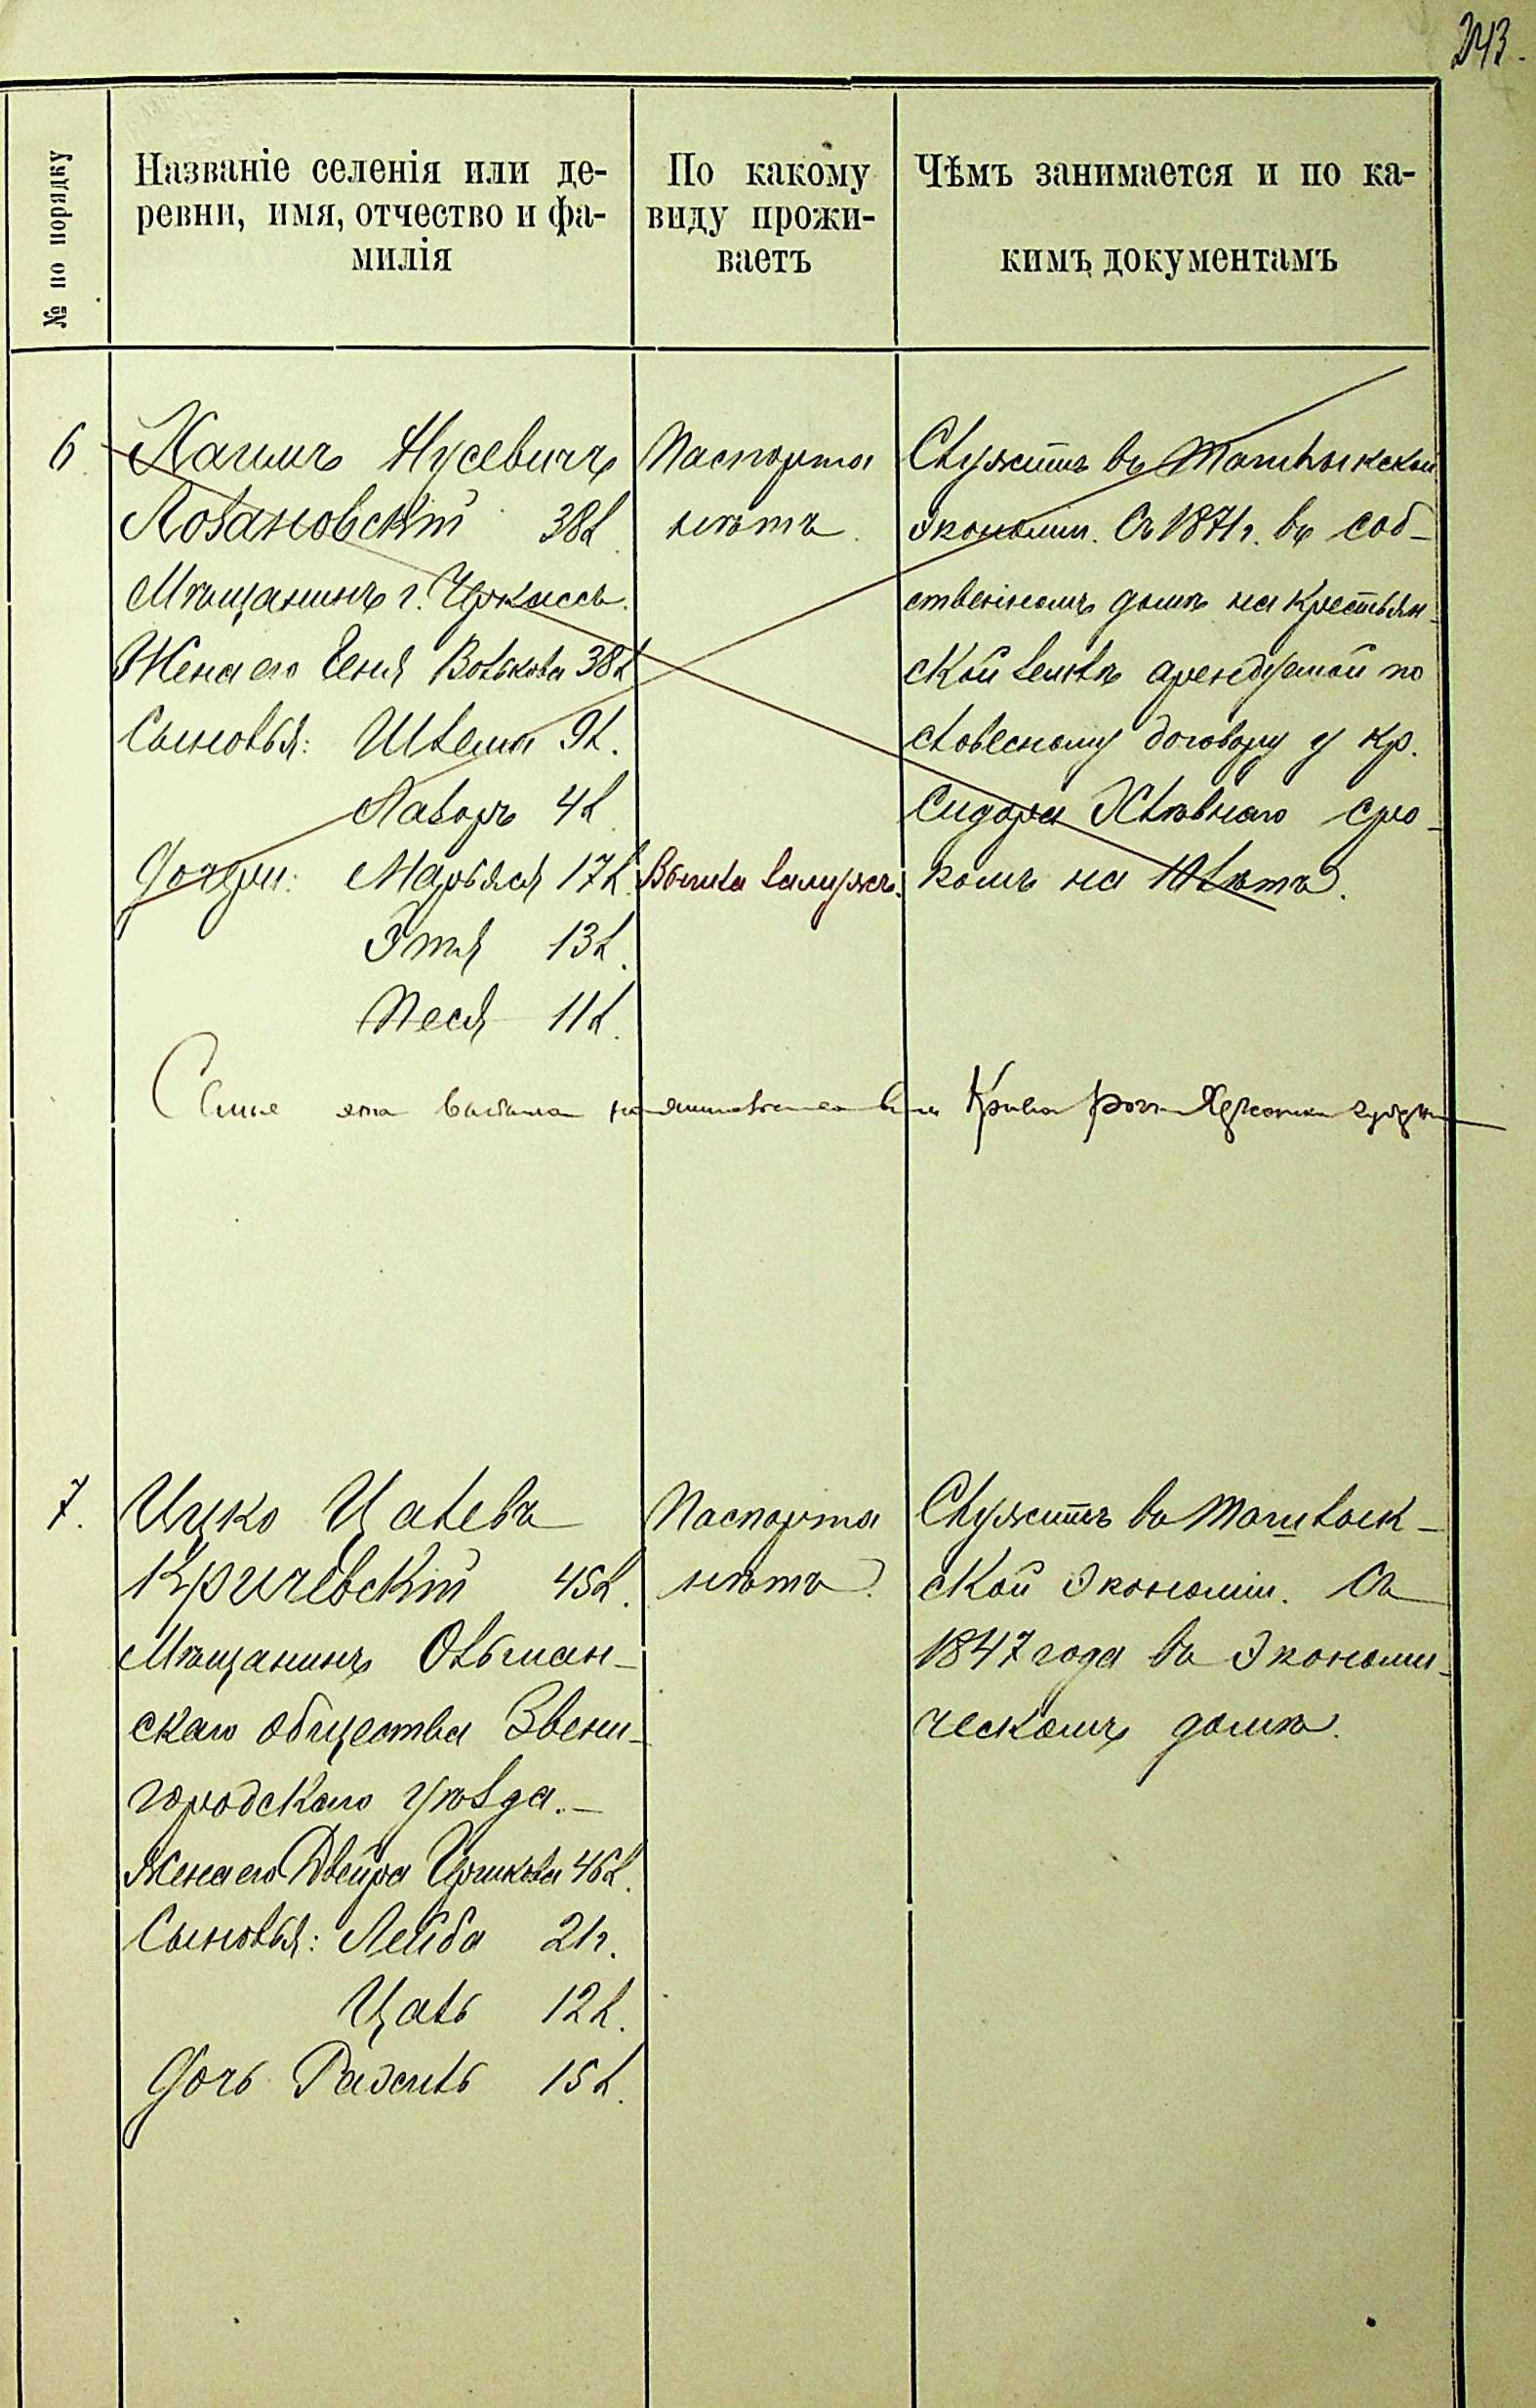 243.
№ по порядку
Названіе селенія или де-
ревни, имя, отчество и фа-
милія
По какому
виду прожи-
ваетъ
Чѣмъ занимается и по ка-
кимъ документамъ
6
Хаимъ Нусевичъ
Лозановскій 38л.
Мѣщанинъ г. Черкассъ.
Жена его Геня Волькова 38л
Сыновья: Шлема 9л.
Лазоръ 4л.
Дочери: Марьяся 17л.
Этя 13л.
Песя 11л.
Паспорта
нѣтъ.
Вышла замужъ.
Служитъ въ
экономіи. Съ 1871г. въ соб-
ственномъ домѣ на крестьян-
ской землѣ арендуемой по
словесному договору у кр.
Сидора Хлѣвнаго сро-
комъ на 10 лѣтъ.
эта выбыла на жительство въ Кривой Рогъ Херсонской губерн
7.
Ицко Цалевъ
Кричевскій 45л.
Мѣщанинъ Ольшан-
скаго общества Звени-
городскаго уѣзда.-
Жена его Двейра Ицькова 46л.
Сыновья: Лейба 21г.
Цаль 12л.
Дочь Рахиль 15л.
Паспорта
нѣтъ.
Служитъ въ
ской Экономіи. Съ
1847 года въ Экономи-
ческомъ домѣ.